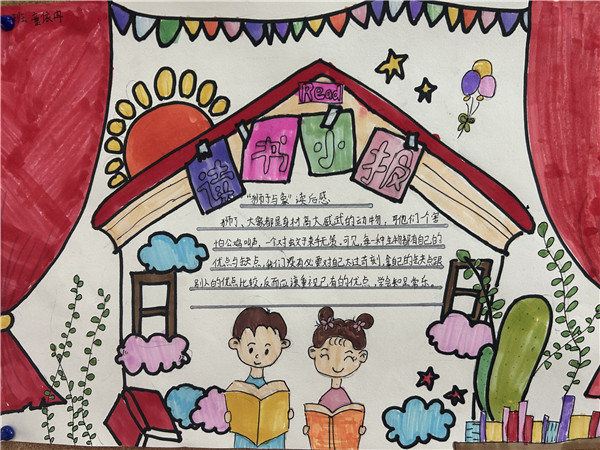 Read
读书小报
“狮子与象”读后感
狮子、大象都是身材高大威武的动物,可他们一个害
怕公鸡叫声,一个对蚊子束手无策。可见,每一种生物都有自己的
优点与缺点,我们没有必要对自己太过苛刻,拿自己的缺点跟
别人的优点比较,反而应该重视己有的优点,学会知足常乐。